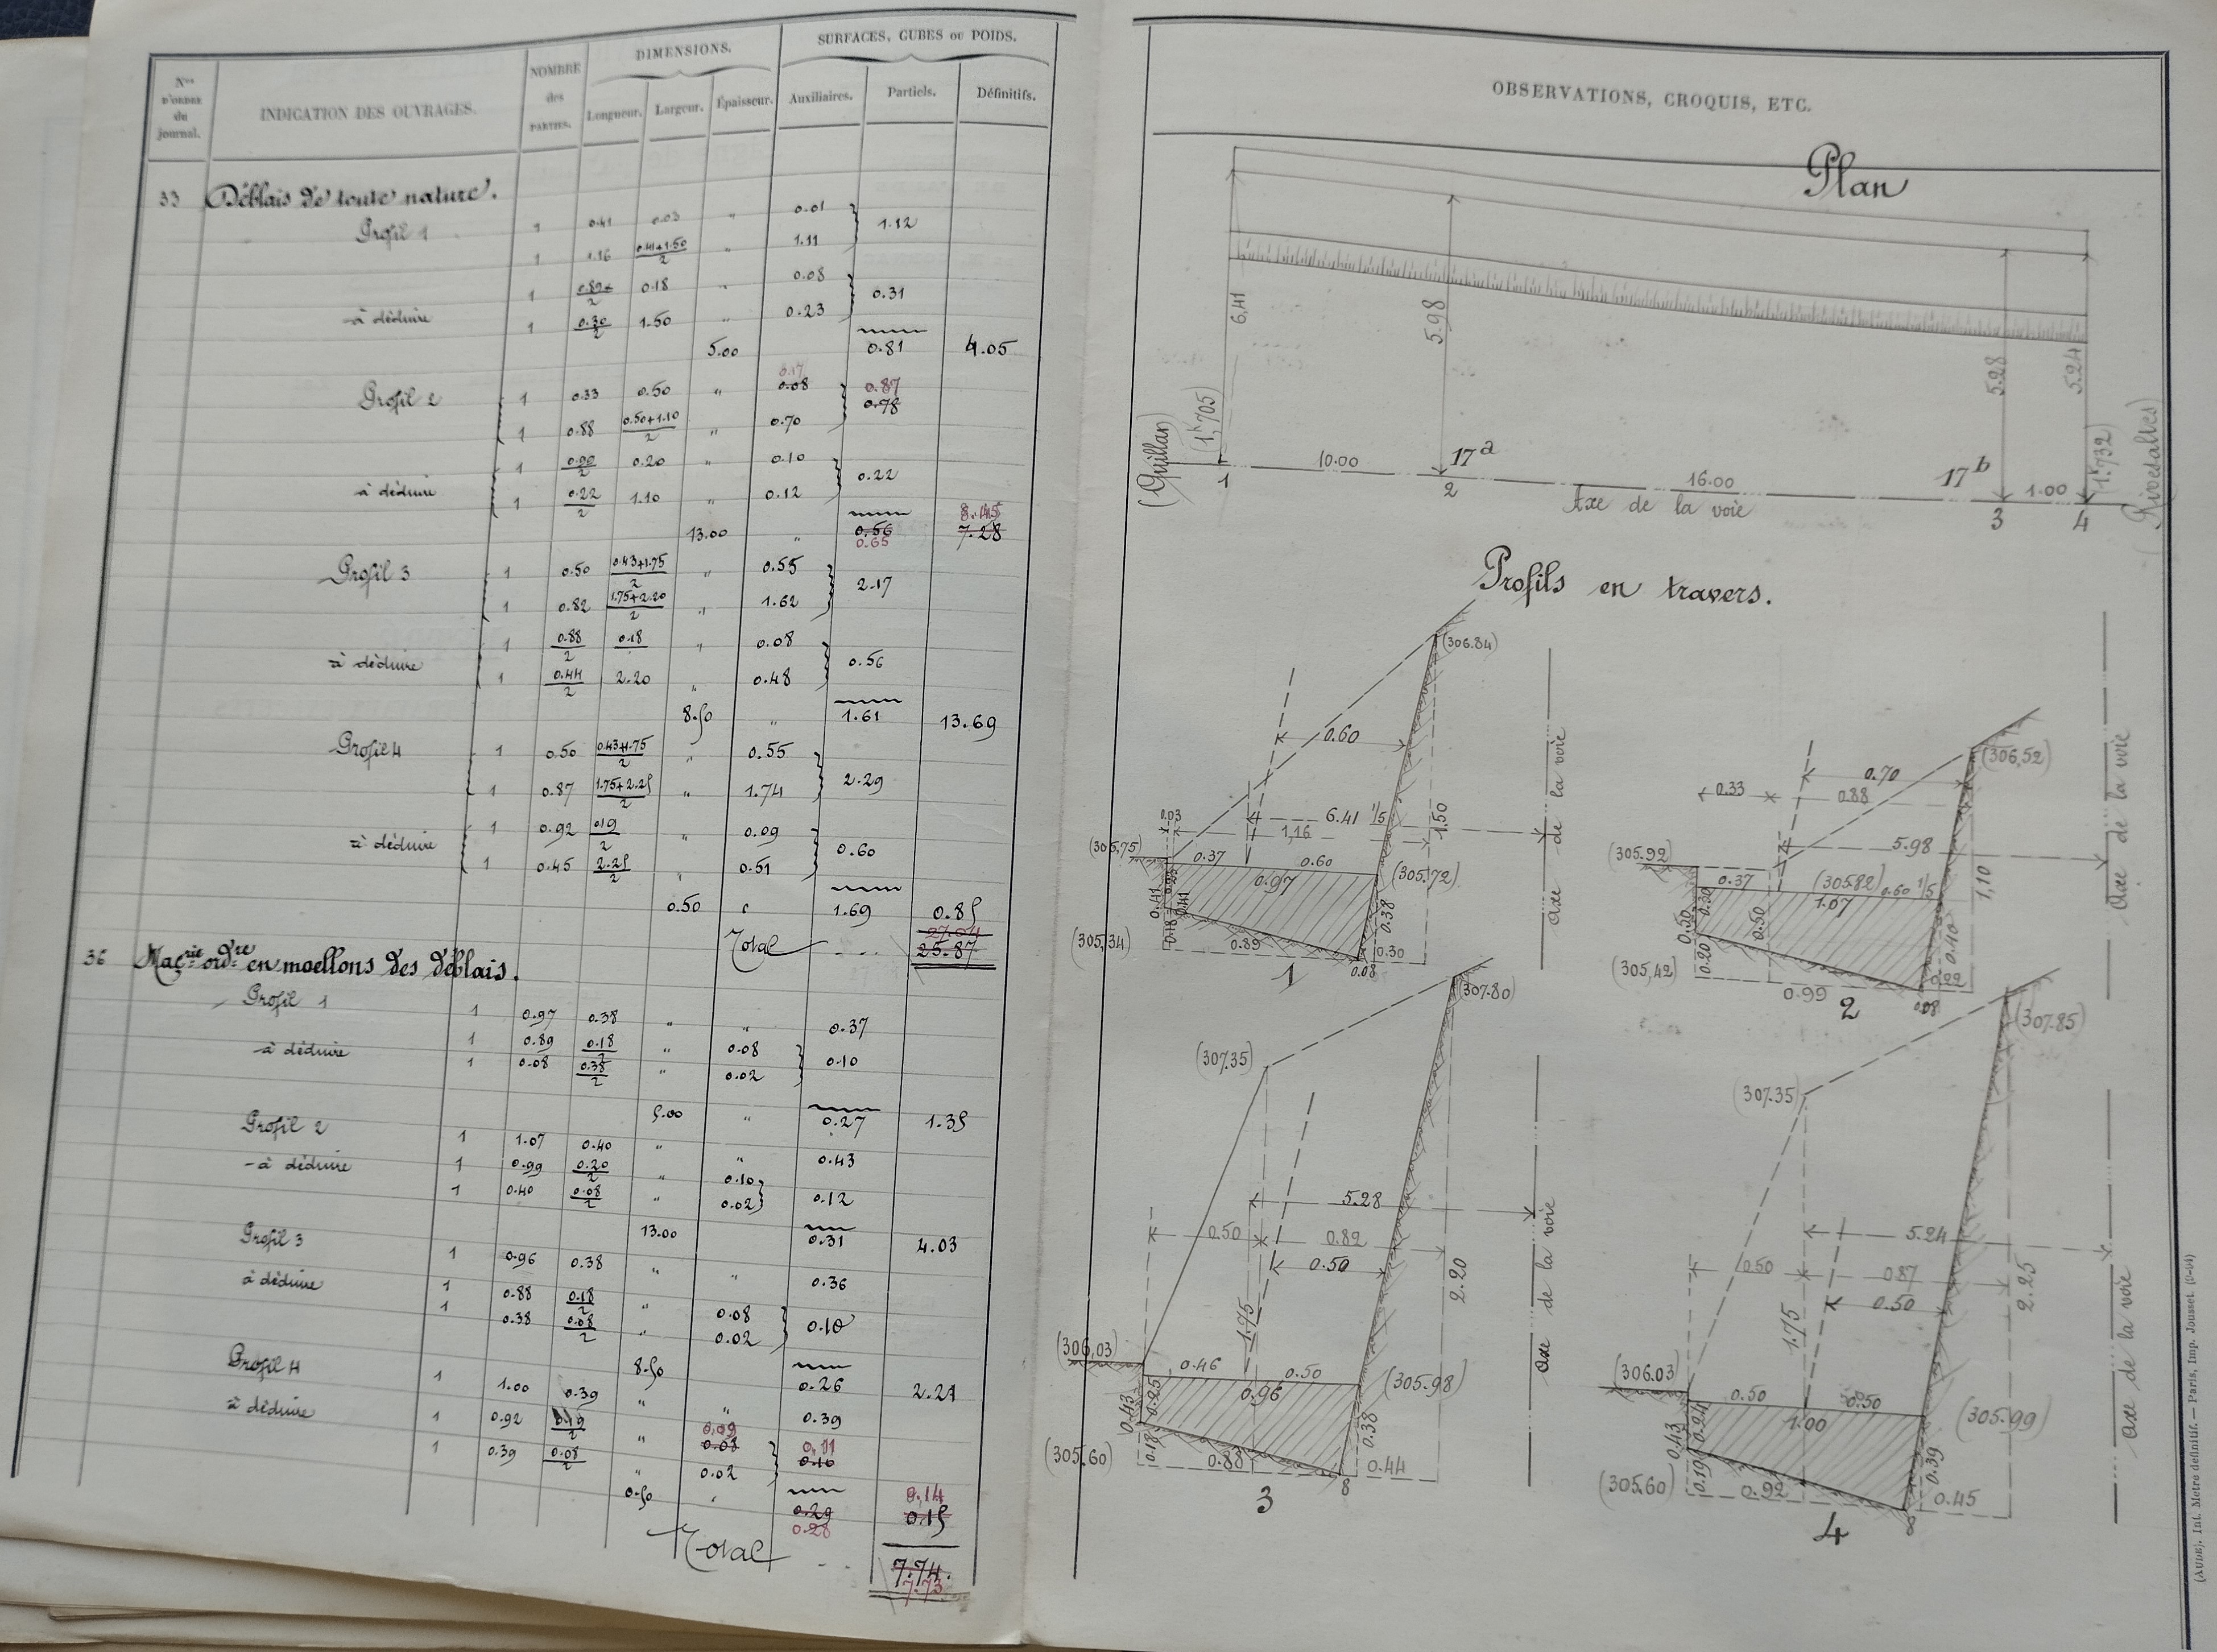 Nos D'ORDRE du journal.
INDICATION DES OUVRAGES.
NOMBRE des PARTIES.
DIMENSIONS.
Longueur. Largeur. Épaisseur.
SURFACES, CUBES OU POIDS.
Auxiliaires. Partiels. Définitifs.
33 Déblais de toute nature.
Profil 1 1 0.41 0.03 " 0.01
1.12
1 1.16 0.41+1.50/2 " 1.11
1 /2 0.18 " 0.08
0.31
à déduire 1 0.30/2 1.50 " 0.23
5.00 0.81 4.05
0.17 0.87
Profil 2 1 0.33 0.50 " 0.08 0.78
1 0.88 0.50+1.10/2 " 0.70
1 0.99/2 0.20 " 0.10
0.22
à déduire 1 0.22/2 1.10 " 0.12
8.45
13.00 " 0.56 7.28
0.65
Profil 3 1 0.50 0.43+1.75/2 " 0.55
2.17
1 0.82 1.75+2.20/2 " 1.62
1 0.88/2 0.18 " 0.08
0.56
à déduire 1 0.44/2 2.20 " 0.48
8.50 " 1.61 13.69
Profil 4 1 0.50 0.43+1.75/2 " 0.55
2.29
1 0.87 1.75+2.25/2 " 1.74
1 0.92 0.19/2 " 0.09
0.60
à déduire 1 0.45 2.25/2 " 0.51
0.50 " 1.69 0.85
27.04
Total 25.87
36 Maçrie ordre en moellons des déblais.
Profil 1 1 0.97 0.38 " " 0.37
à déduire 1 0.89 0.18/2 " 0.08
0.10
1 0.08 0.38/2 " 0.02
5.00 " 0.27 1.35
Profil 2 1 1.07 0.40 " " 0.43
à déduire 1 0.99 0.20/2 " 0.10
0.12
1 0.40 0.08/2 " 0.02
13.00 0.31 4.03
Profil 3 1 0.96 0.38 " " 0.36
à déduire 1 0.88 0.18/2 " 0.08
0.10
1 0.38 0.08/2 " 0.02
8.50 0.26 2.21
Profil 4 1 1.00 0.39 " " 0.39
0.09 0.11
à déduire 1 0.92 0.19/2 " 0.08 0.10
1 0.39 0.08/2 " 0.02
0.14
0.50 " 0.29 0.15
0.28
Total 7.74
7.73
OBSERVATIONS, CROQUIS, ETC.
Plan
6,41
5.98
5.28
5.24
(Quillan)
(1K.705)
(1K.732)
(Rivesaltes)
10.00 17a 16.00 17b 1.00
1 2 Axe de la voie 3 4
Profils en travers.
(306.84)
0.60
0.03
6.41 1/5
1,16
1.50
(305,75)
0.37 0.60
0.97
(305.72)
0.41
0.41
0.18
0.38
(305,34)
0.89
0.30
0.08
1
axe de la voie
(306,52)
0.70
0.33 0.88
5.98
(305.92)
0.37 (305.82) 0.60 1/5
1.07
1,10
0.50
0.30
0.50
0.20
0.40
(305,42)
0.99
0.22
0.08
2
axe de la voie
(307.80)
(307.35)
5.28
0.50 0.82
0.50
2.20
1.75
(306,03)
0.46 0.50
0.96
(305.98)
0.43
0.25
0.18
0.38
(305.60)
0.88
0.44
8
3
axe de la voie
(307.85)
(307.35)
5.24
0.50 0.87
0.50
2.25
1.75
(306.03)
0.50 0.50
1.00
(305.99)
0.43
0.24
0.19
0.39
(305.60)
0.92
0.45
8
4
axe de la voie
(AUDE). Int. Metré définitif. — Paris, Imp. Jousset. (9-04)